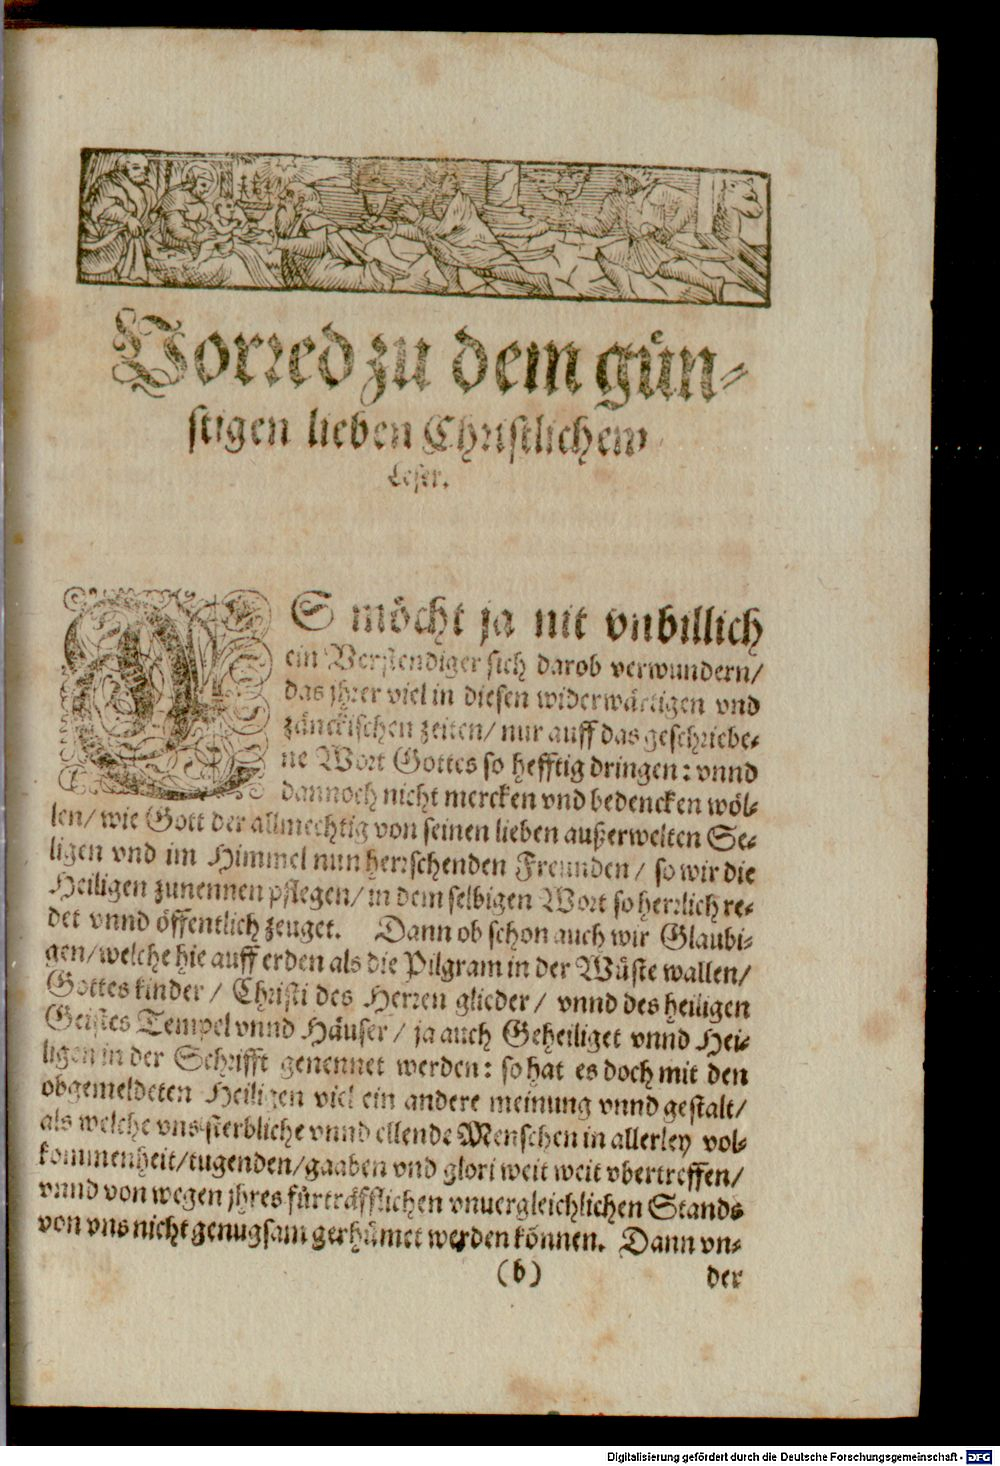 Vorred zu dem gün-
stigen lieben Christlichem
Leser.
ES möcht ja nit vnbillich
ein Verstendiger sich darob verwundern/
das jhrer viel in diesen widerwärtigen vnd
zänckischen zeiten/ nur auff das geschriebe-
ne Wort Gottes so hefftig dringen: vnnd
dannoch nicht mercken vnd bedencken wöl-
len/ wie Gott der allmechtig von seinen lieben außerwelten Se-
ligen vnd im Himmel nun herrschenden Freunden/ so wir die
Heiligen zunennen pflegen/ in dem selbigen Wort so herrlich re-
det vnnd öffentlich zeuget. Dann ob schon auch wir Glaubi-
gen/ welche hie auff erden als die Pilgram in der Wüste wallen/
Gottes kinder/ Christi des Herren glieder/ vnnd des heiligen
Geistes Tempel vnnd Häuser/ ja auch Geheiliget vnnd Hei-
ligen in der Schrifft genennet werden: so hat es doch mit den
obgemeldeten Heiligen viel ein andere meinung vnnd gestalt/
als welche vns sterbliche vnnd ellende Menschen in allerley vol-
kommenheit/ tugenden/ gaaben vnd glori weit weit vbertreffen/
vnnd von wegen jhres fürträfflichen vnuergleichlichen Stands
von vns nicht genugsam gerhümet werden können. Dann vn-
(b) der
Digitalisierung gefördert durch die Deutsche Forschungsgemeinschaft - DFG